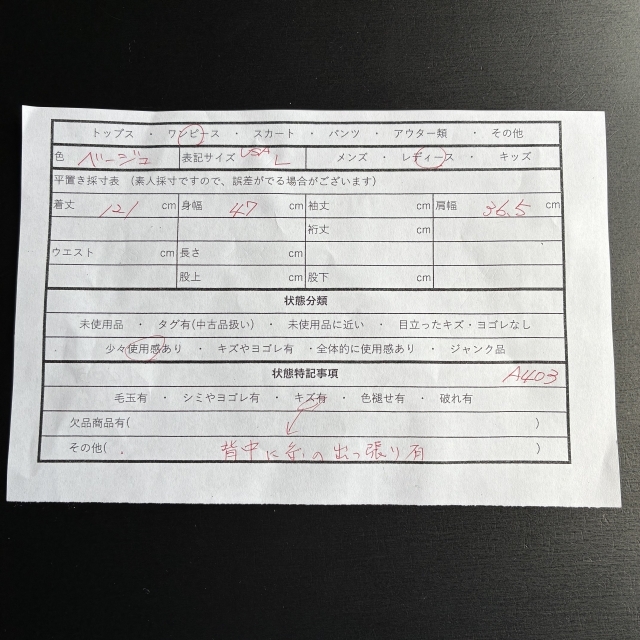 トップス ・ ワンピース ・ スカート ・ パンツ ・ アウター類 ・ その他
色 ベージュ 表記サイズ USA L メンズ ・ レディース ・ キッズ
平置き採寸表 (素人採寸ですので、誤差がでる場合がございます)
着丈 121 cm 身幅 47 cm 袖丈 cm 肩幅 36.5 cm
裄丈 cm
ウエスト cm 長さ cm
股上 cm 股下 cm
状態分類
未使用品 ・ タグ有(中古品扱い) ・ 未使用品に近い ・ 目立ったキズ・ヨゴレなし
少々使用感あり ・ キズやヨゴレ有 ・全体的に使用感あり ・ ジャンク品
状態特記事項 A403
毛玉有 ・ シミやヨゴレ有 ・ キズ有 ・ 色褪せ有 ・ 破れ有
欠品商品有( )
その他( 背中に糸の出っ張り有 )